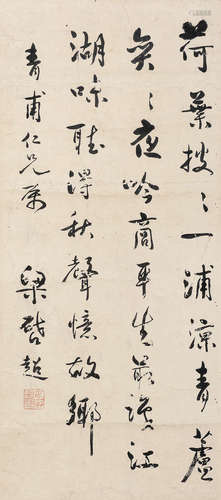 荷葉披〻一浦涼青蘆
奕〻夜吟商平生最識江
湖味聽得秋聲憶故鄉
青甫仁兄屬 梁啟超